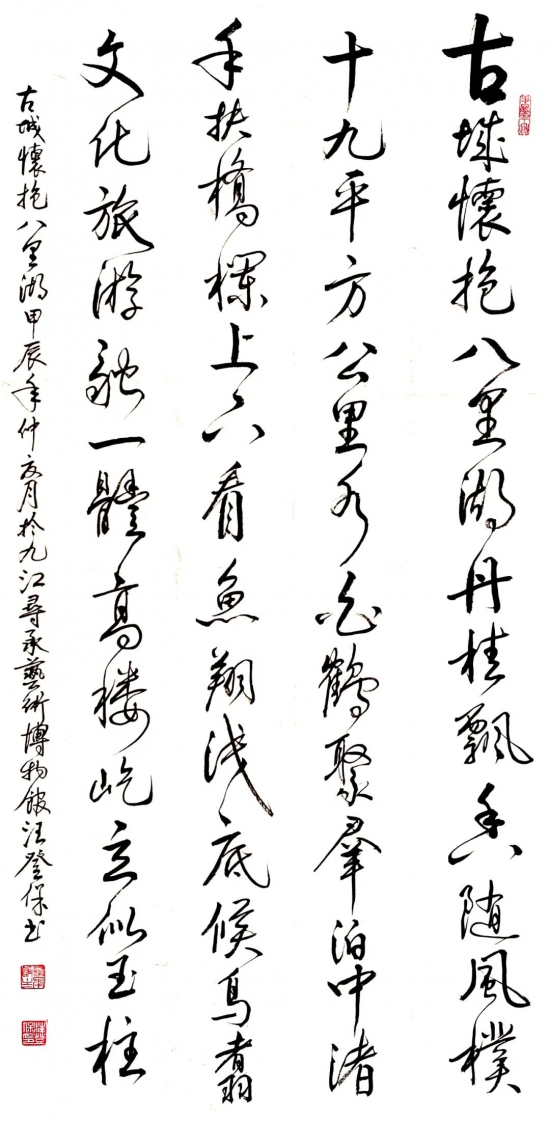 古城懷抱八里湖丹桂飄香隨風樸
十九平方公里水白鶴聚羣泊中渚
手扶橋欄上下看魚翔浅底候鳥翥
文化旅游融一體高楼屹立似玉柱
古城懷抱八里湖甲辰年仲夏月於九江尋承藝術博物館汪登保书